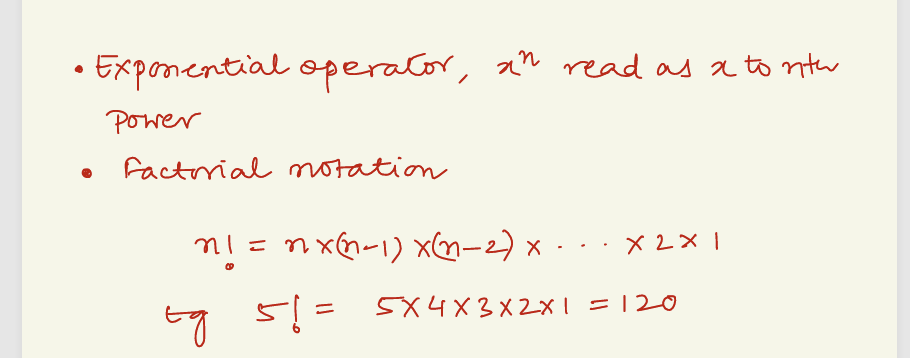 • Exponential operator, xⁿ read as x to nth
Power
• Factorial notation
n! = n×(n-1)×(n-2)× . . . . ×2×1
eg 5! = 5×4×3×2×1 = 120